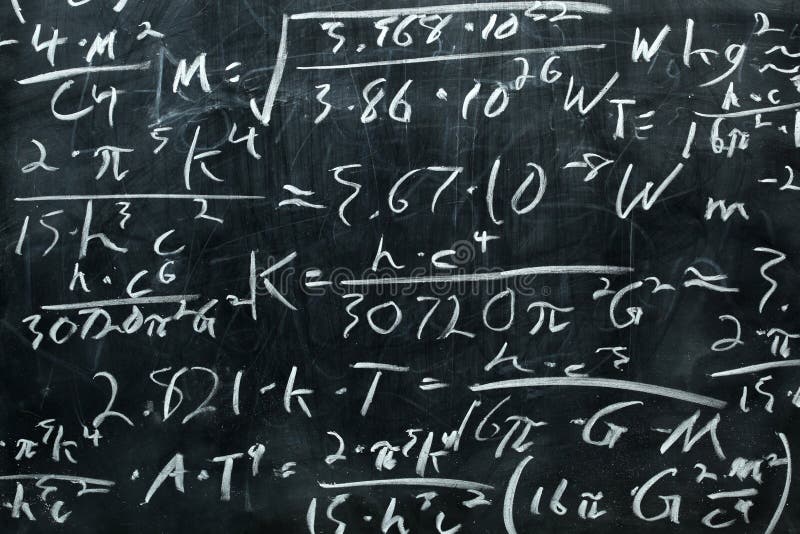 4·M² / C4 M = √(3.568·10²² / 3.86·10²⁶ W) W kg² ≈
2·π⁵k⁴ / 15·h³c² ≈ 5,67·10⁻⁸ W m⁻² T = h·c³ / 16π²·
h·c⁶ / 30720π²G² K = h·c⁴ / 30720π²G² ≈ 3.
2.821·K·T = h·c³ / 16π·G·M 2·π / 15·
·π⁵k⁴ / h³c² ·A·T⁹ = 2·π⁵k⁴ / 15·h³c² (16π G² m² / c⁴